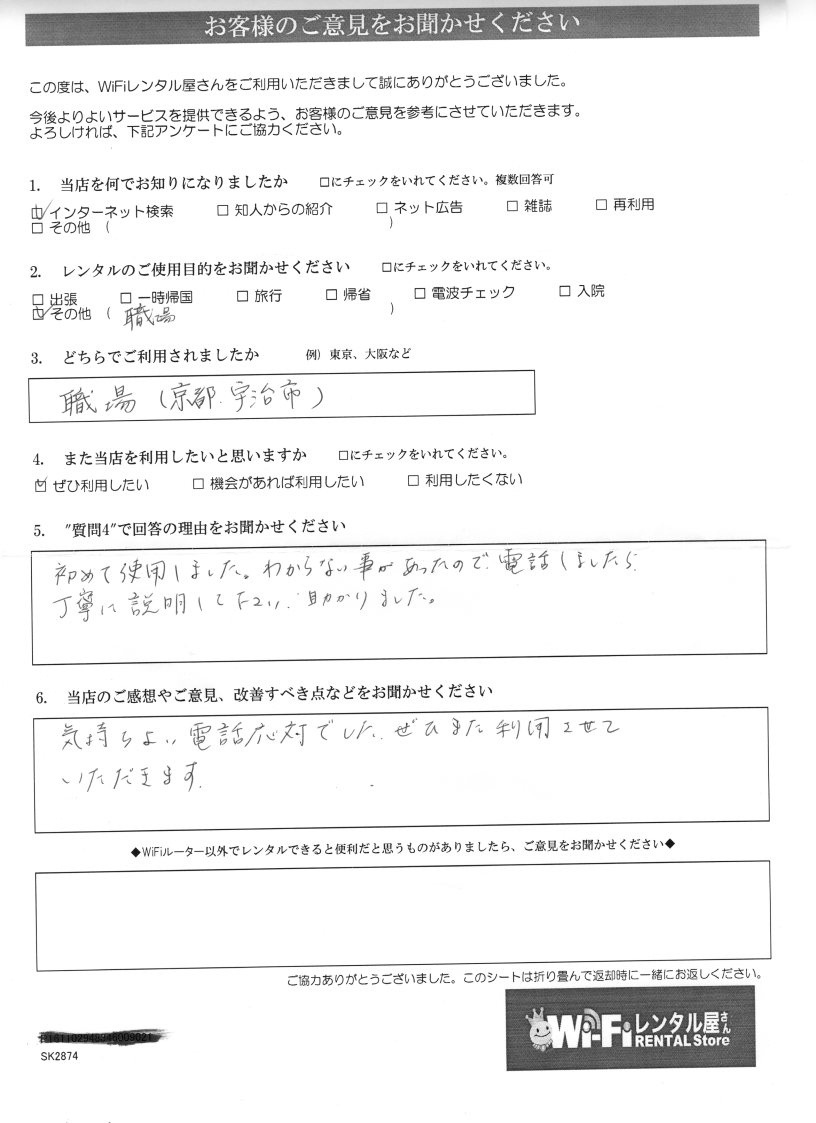 お客様のご意見をお聞かせください
この度は、WiFiレンタル屋さんをご利用いただきまして誠にありがとうございました。
今後よりよいサービスを提供できるよう、お客様のご意見を参考にさせていただきます。
よろしければ、下記アンケートにご協力ください。
1. 当店を何でお知りになりましたか □にチェックをいれてください。複数回答可
☑インターネット検索 □ 知人からの紹介 □ ネット広告 □ 雑誌 □ 再利用
□ その他 ( )
2. レンタルのご使用目的をお聞かせください □にチェックをいれてください。
□ 出張 □ 一時帰国 □ 旅行 □ 帰省 □ 電波チェック □ 入院
☑その他 ( 職場 )
3. どちらでご利用されましたか 例）東京、大阪など
職場 (京都.宇治市)
4. また当店を利用したいと思いますか □にチェックをいれてください。
☑ ぜひ利用したい □ 機会があれば利用したい □ 利用したくない
5. ″質問4″で回答の理由をお聞かせください
初めて使用しました。わからない事があったので、電話しましたら
丁寧に説明して下さい、助かりました。
6. 当店のご感想やご意見、改善すべき点などをお聞かせください
気持ちよい電話応対でした、ぜひまた利用させて
いただきます.
◆WiFiルーター以外でレンタルできると便利だと思うものがありましたら、ご意見をお聞かせください◆
ご協力ありがとうございました。このシートは折り畳んで返却時に一緒にお返しください。
SK2874
Wi-Fiレンタル屋さん
RENTAL Store